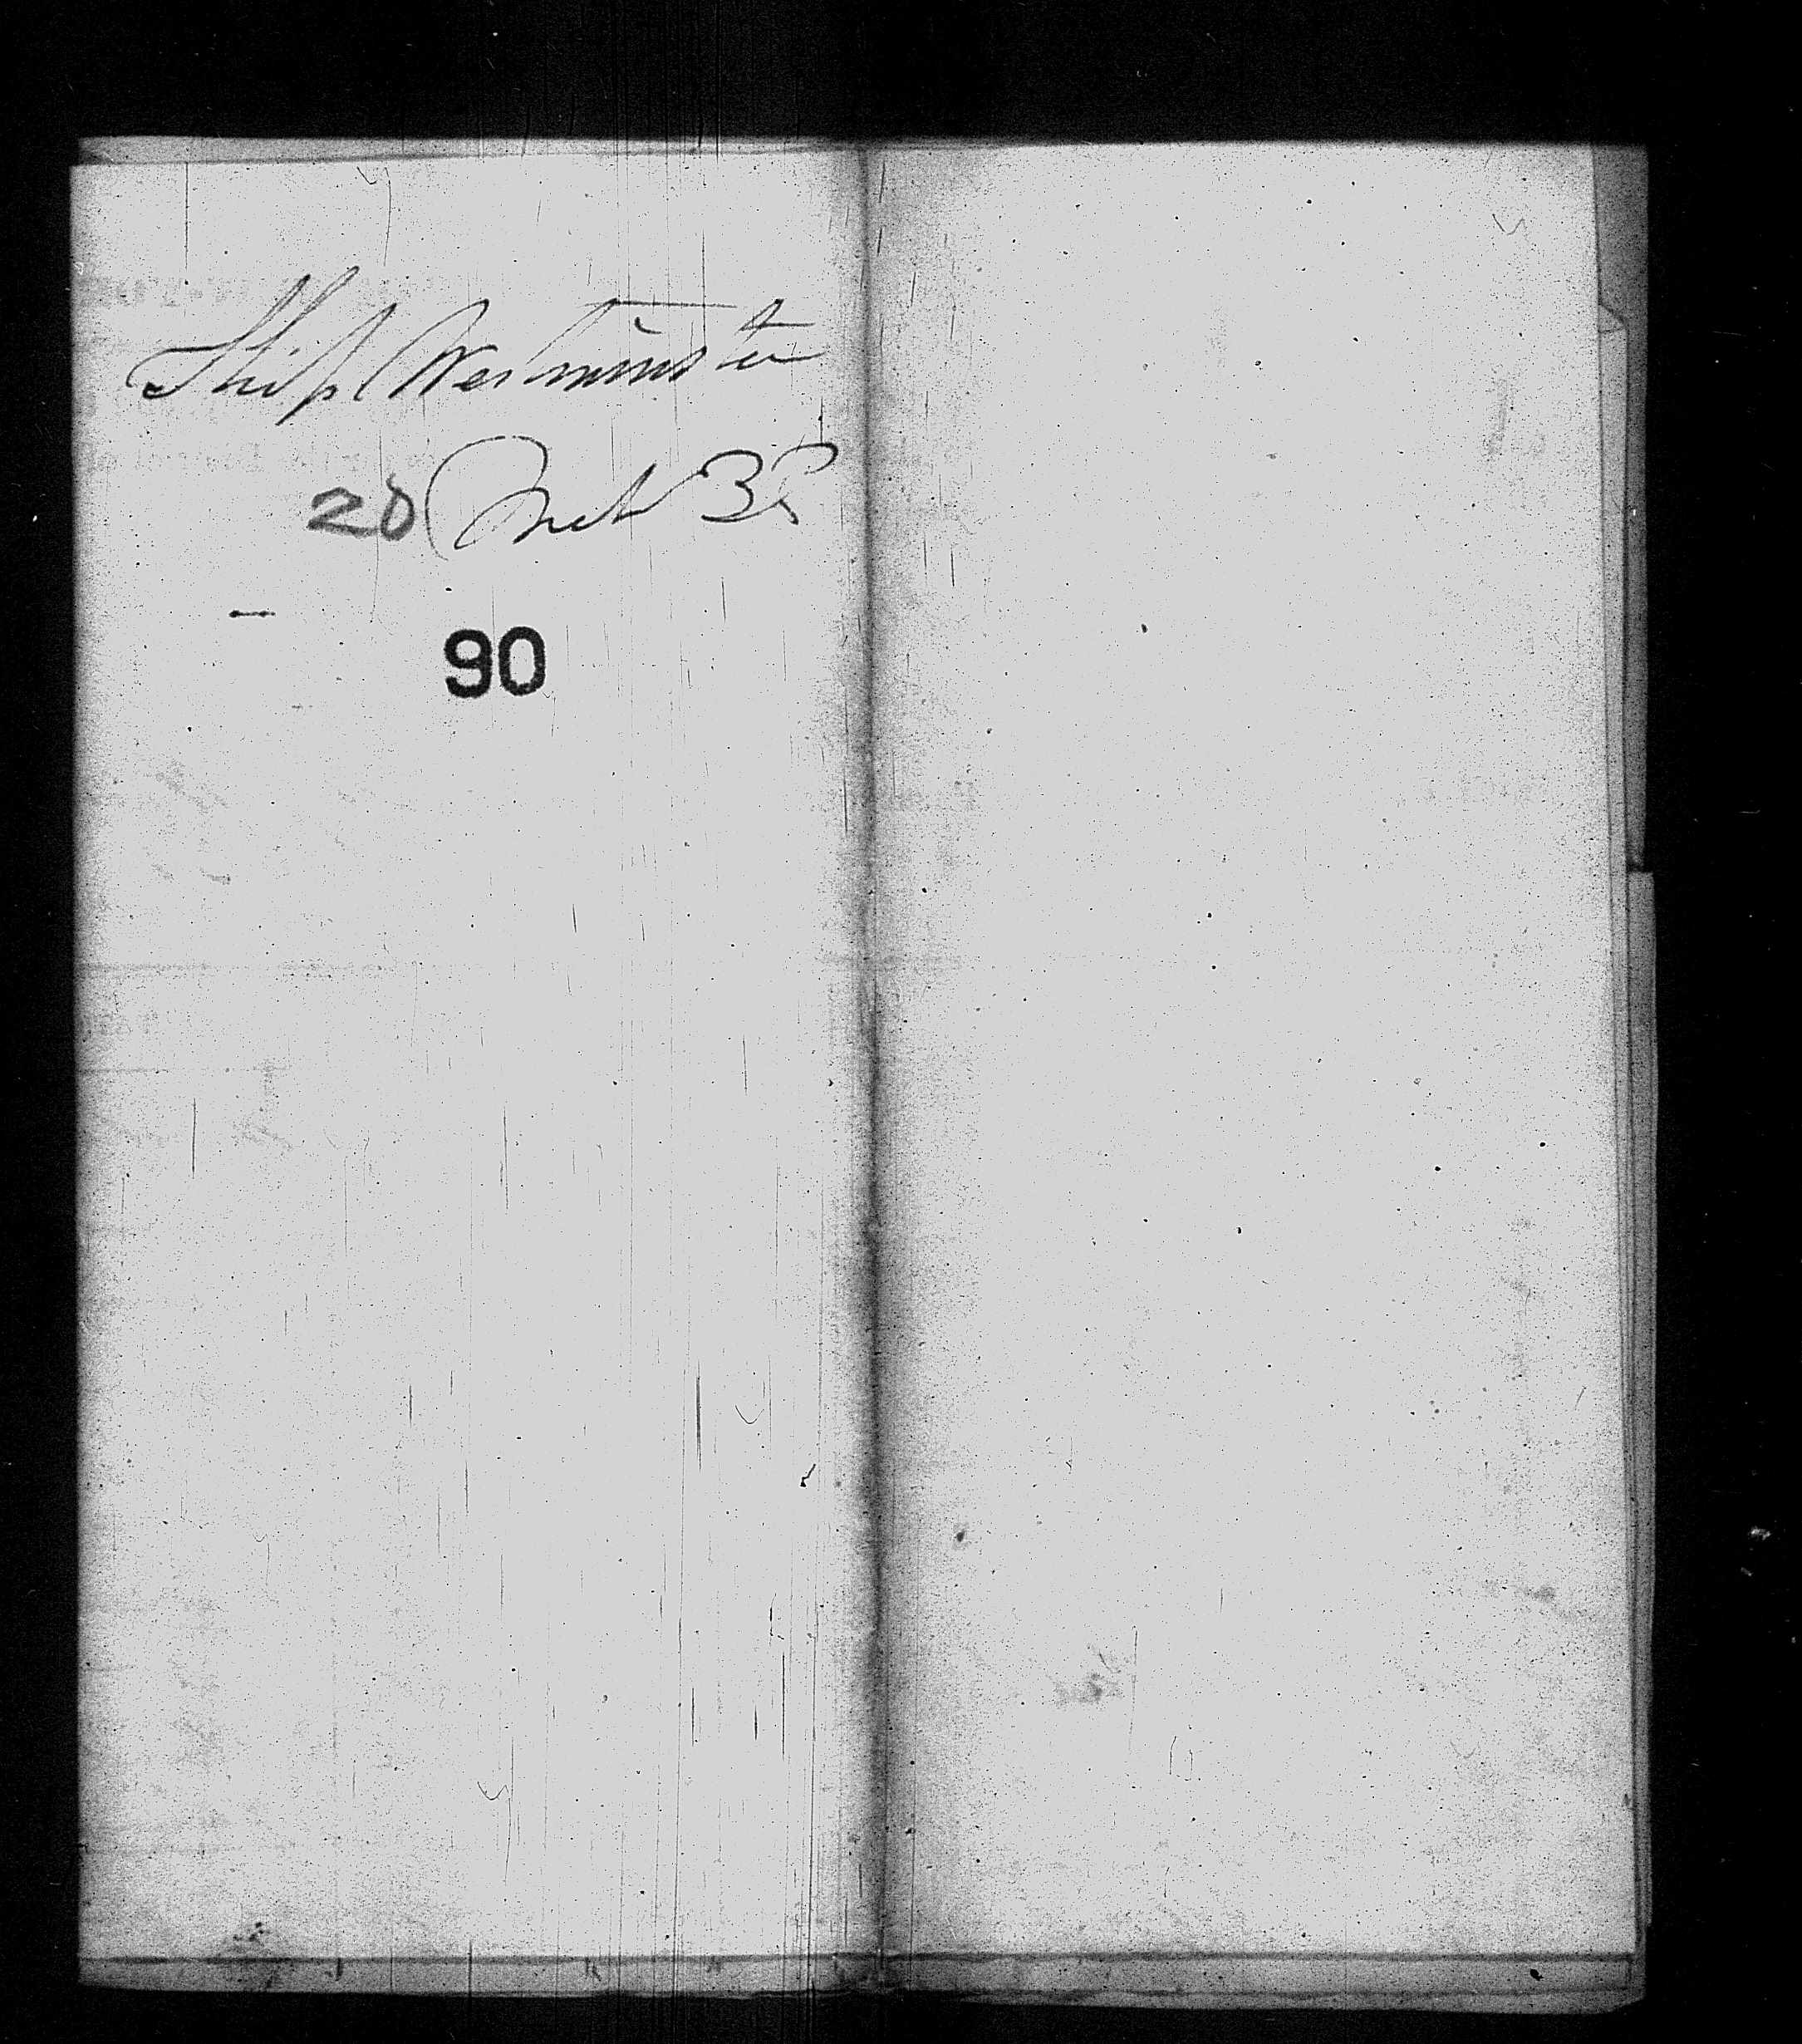 Ship Westminster
20 Mch 38
90